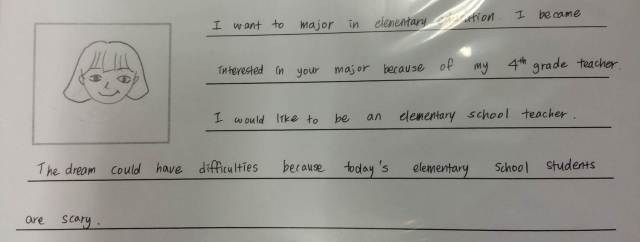 I want to major in elementary education. I became
interested in your major because of my 4th grade teacher.
I would like to be an elementary school teacher.
The dream could have difficulties because today's elementary school students
are scary.